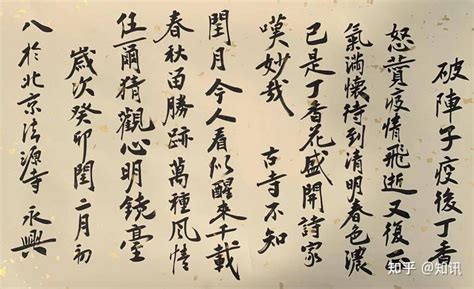 破陣子疫後丁香
怒疫情飛逝又復
氣滿懷待到清明春色濃
已是丁香花盛開詩家
嘆妙哉 古寺不知
閏月今人看似醒來千載
春秋留勝跡萬種風情
任爾猜觀心明鏡臺
歲次癸卯閏二月初
八於北京法源寺 永興
知乎 @知讯